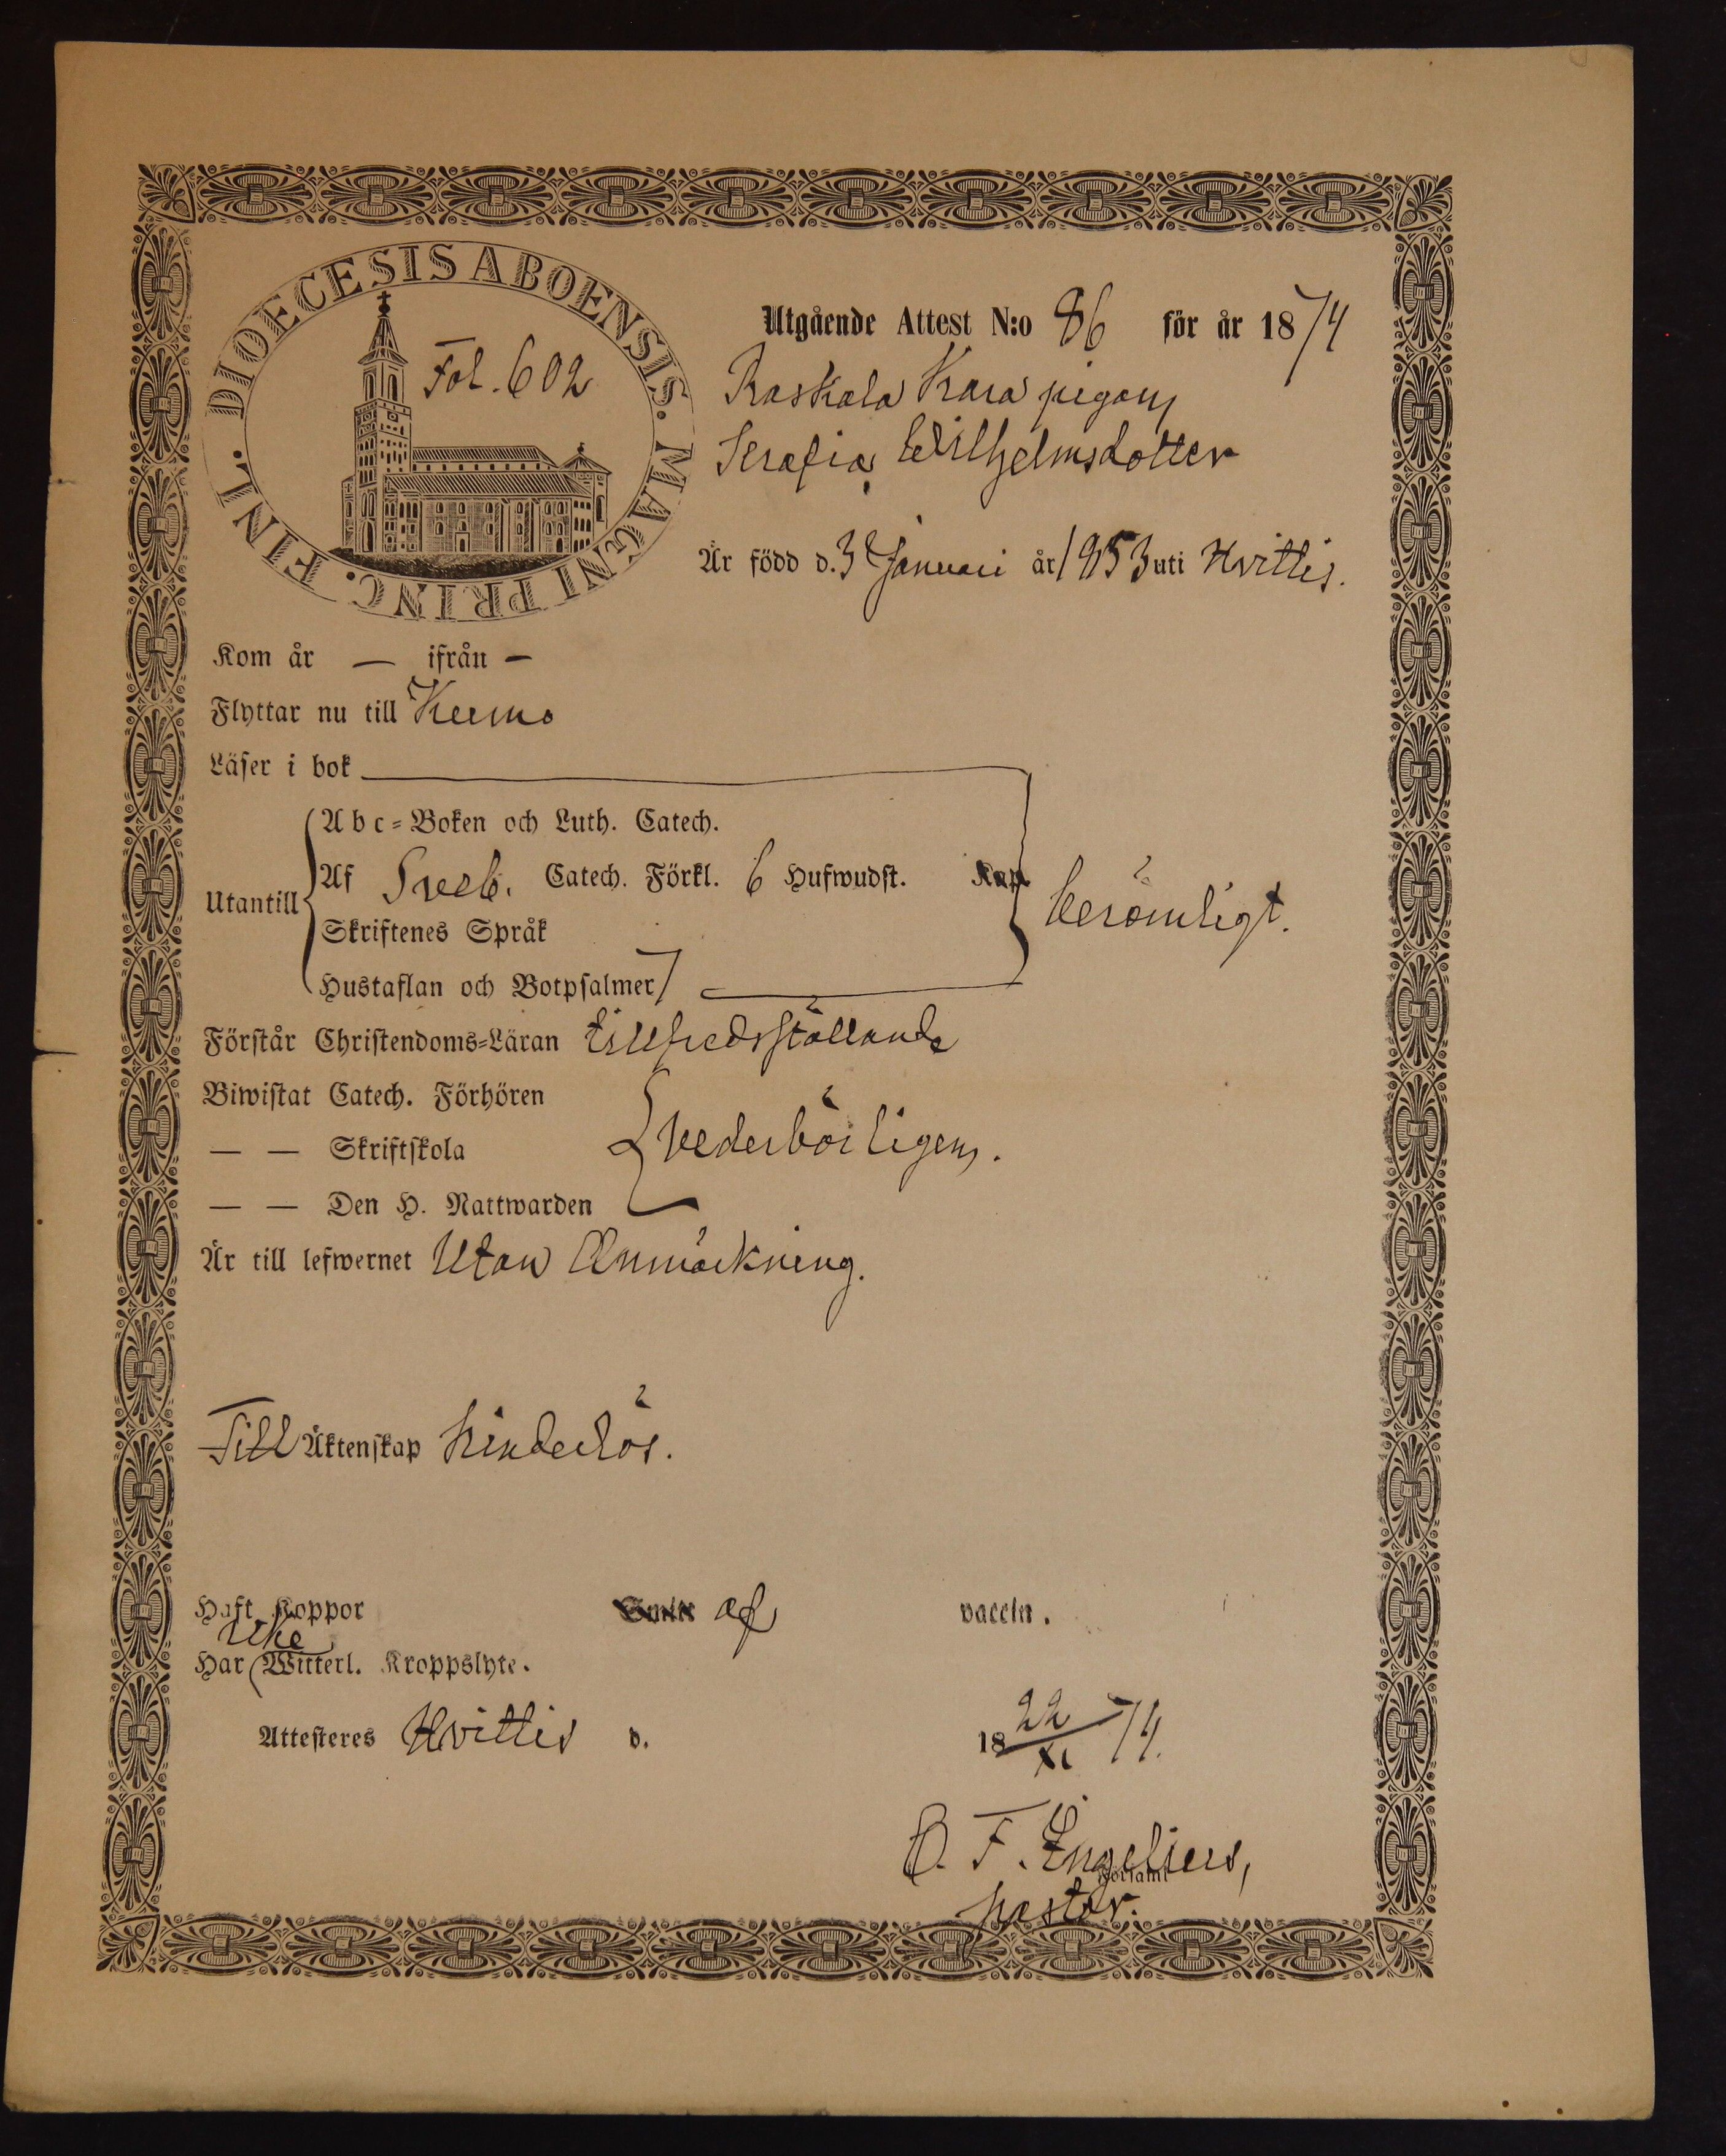 DIOECESIS ABOENSIS. MAGNI PRINC. FINL.
Fol. 602
Utgående Attest N:o 86 för år 1874
Raskala Kara pigan
Serafia Wilhelmsdotter
Är född d. 3 Januari år 1853 uti Hvittis.
Kom år — ifrån —
Flyttar nu till Keumo
Läser i bok
Abc-Boken och Luth. Catech.
Utantill Af Sveb. Catech. Förkl. 6 Hufwudst. Kap. berömligt.
Skriftenes Språk
Hustaflan och Botpsalmer
Förstår Christendoms-Läran tillfredsställande
Biwistat Catech. Förhören
— — Skriftskola vederbörligen.
— — Den H. Nattwarden
Är till lefwernet Utan Anmärkning.
Till Äktenskap hinderlös.
Haft Koppor af vaccin.
Icke
Har Witterl. Kroppslyte.
Attesteres Hvittis d. 18 22/XI 74.
O. F. Engelius,
Församl
pastor.